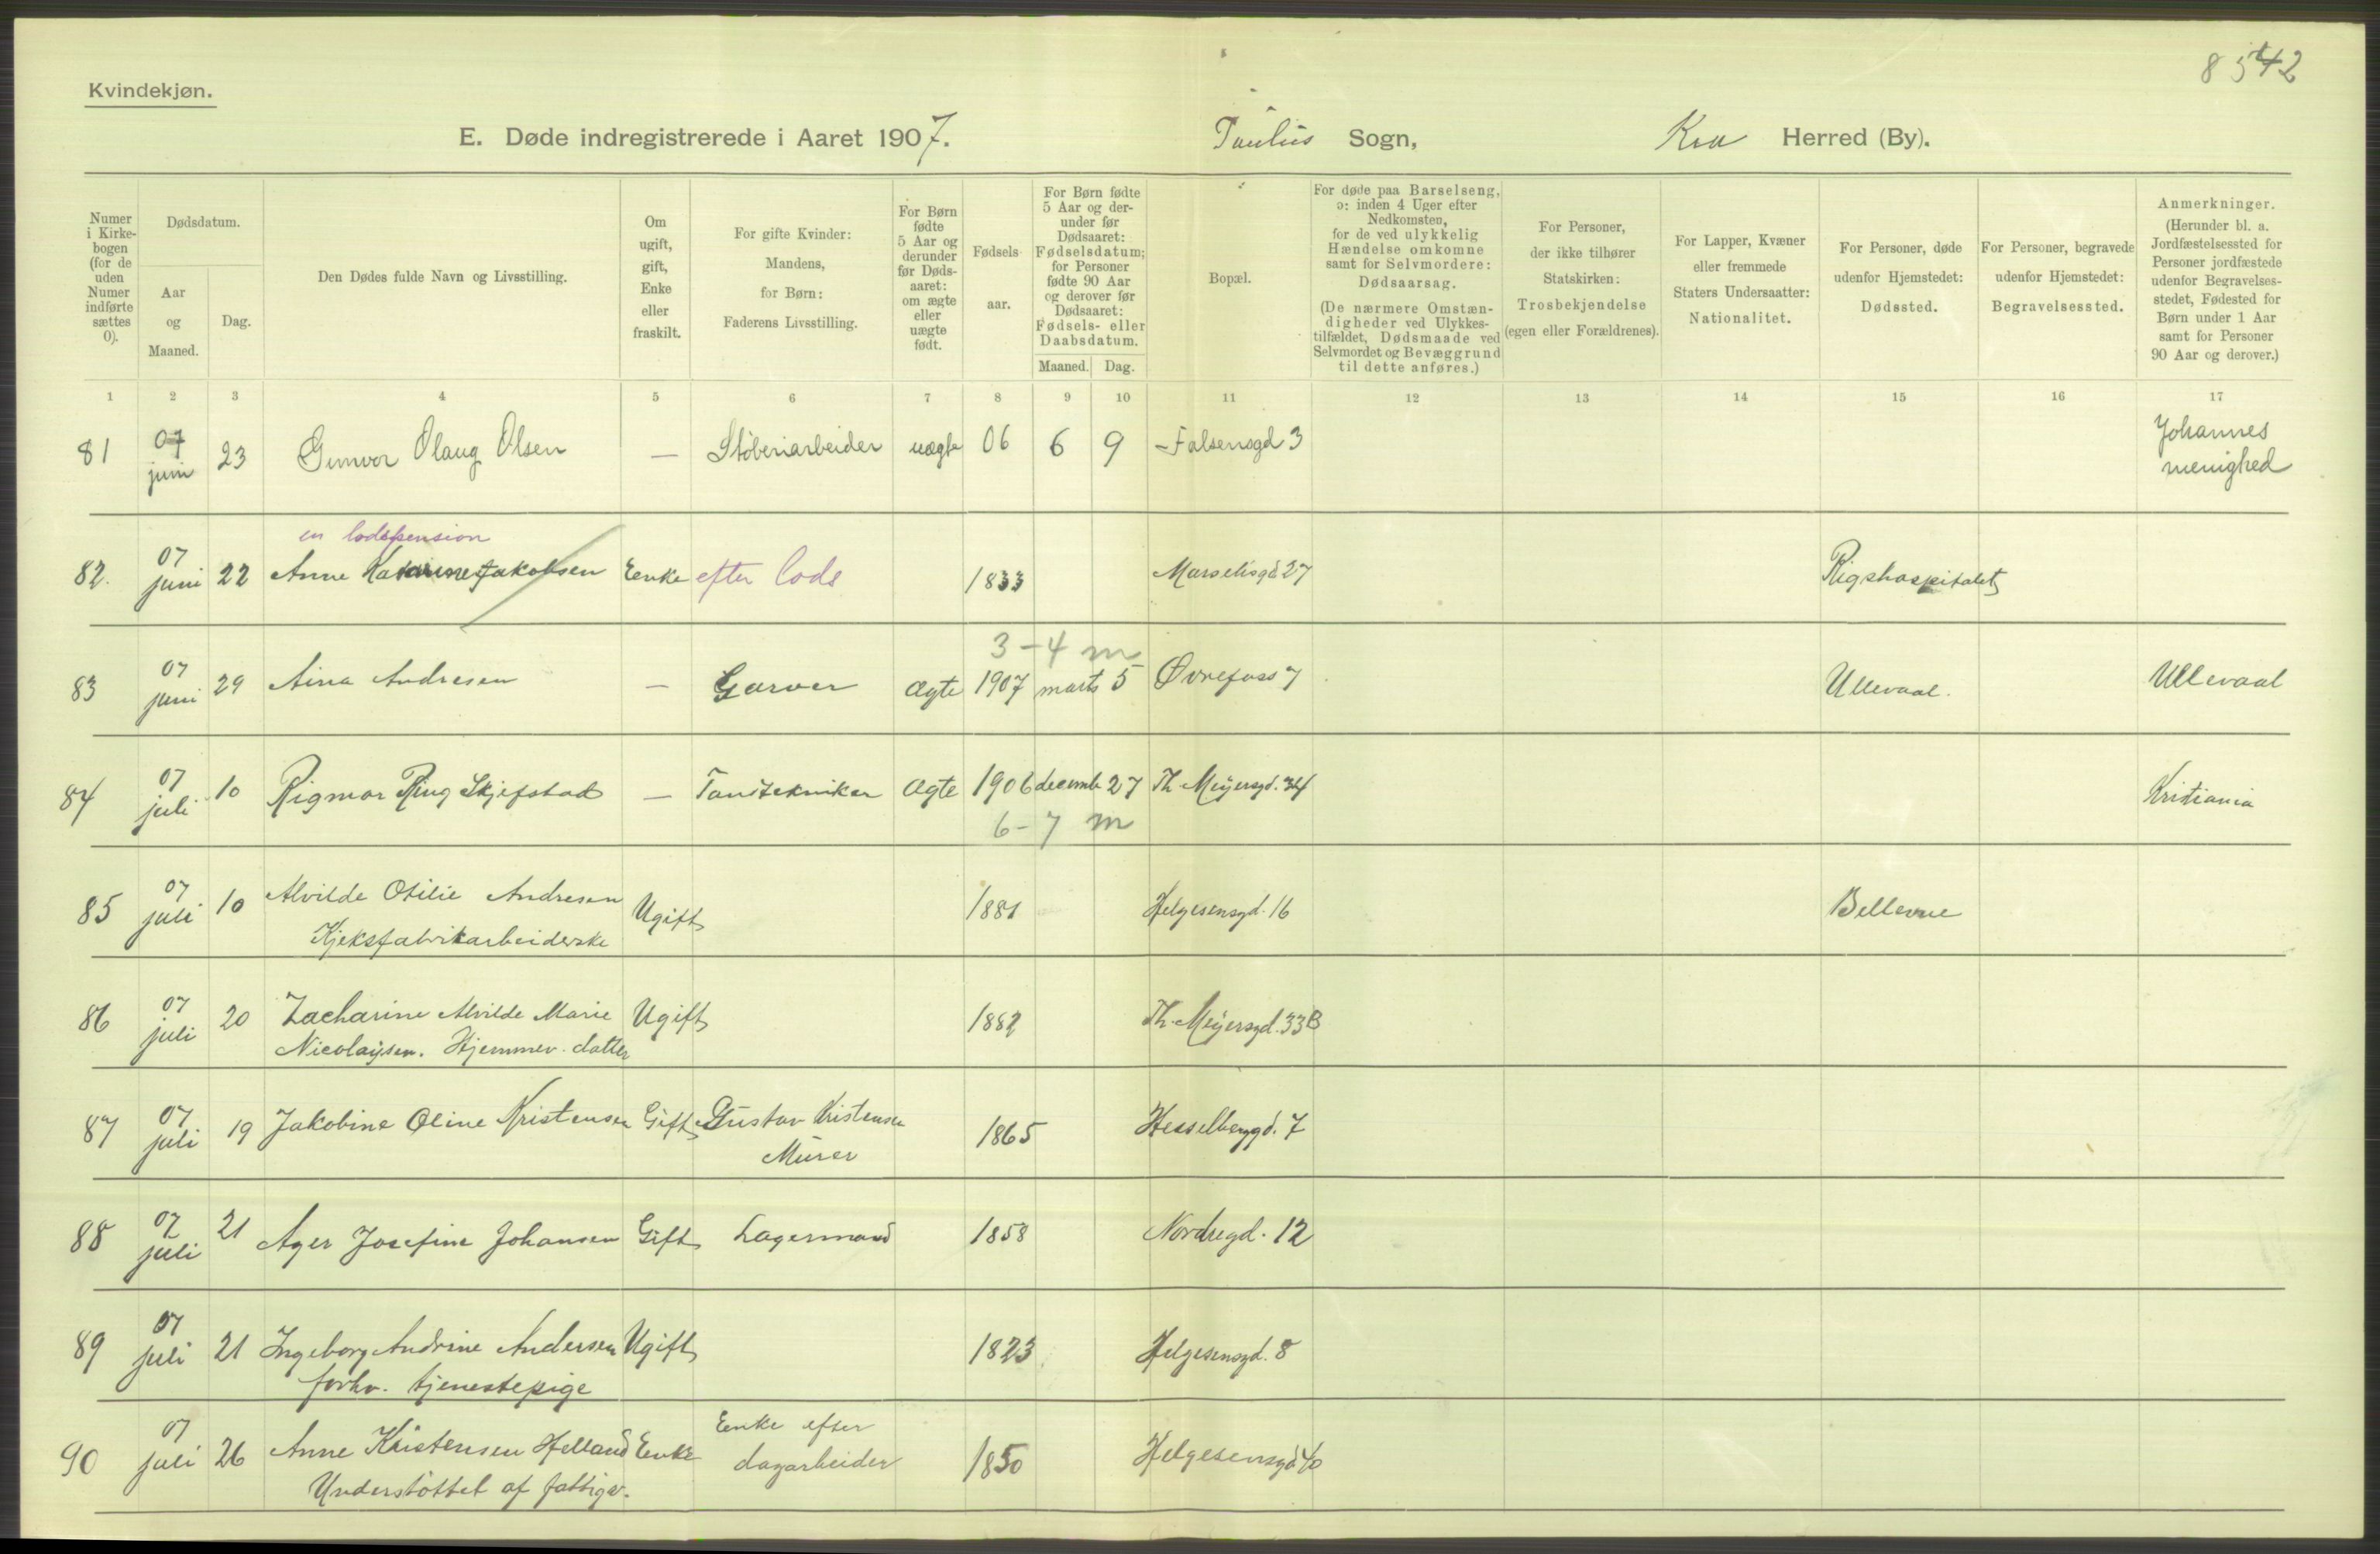 Kvindekjøn.
E. Døde indregistrerede i Aaret 1907. Paulus Sogn, Kra Herred (By).
Numer i Kirkebogen (for de uden Numer indførte sættes 0).
Dødsdatum.
Aar og Maaned.
Dag.
Den Dødes fulde Navn og Livsstilling.
Om ugift, gift, Enke eller fraskilt.
For gifte Kvinder: Mandens, for Børn: Faderens Livsstilling.
For Børn fødte 5 Aar og derunder før Dødsaaret: om ægte eller uægte født.
Fødselsaar.
For Børn fødte 5 Aar og derunder før Dødsaaret: Fødselsdatum; for Personer fødte 90 Aar og derover før Dødsaaret: Fødsels- eller Daabsdatum.
Maaned. Dag.
Bopæl.
For døde paa Barselseng, ɔ: inden 4 Uger efter Nedkomsten, for de ved ulykkelig Hændelse omkomne samt for Selvmordere: Dødsaarsag.
(De nærmere Omstændigheder ved Ulykkestilfældet, Dødsmaade ved Selvmordet og Bevæggrund til dette anføres.)
For Personer, der ikke tilhører Statskirken: Trosbekjendelse (egen eller Forældrenes).
For Lapper, Kvæner eller fremmede Staters Undersaatter: Nationalitet.
For Personer, døde udenfor Hjemstedet: Dødssted.
For Personer, begravede udenfor Hjemstedet: Begravelsessted.
Anmerkninger.
(Herunder bl. a. Jordfæstelsessted for Personer jordfæstede udenfor Begravelsesstedet, Fødested for Børn under 1 Aar samt for Personer 90 Aar og derover.)
1 2 3 4 5 6 7 8 9 10 11 12 13 14 15 16 17
81 07 juni 23 Gunvor Olaug Olsen — Støberiarbeider uægte 06 6 9 Falsensgd 3 Johannes menighed
en lodspension
82. 07 juni 22 Anne Katarine Jakobsen Enke efter lods 1833 Marselisgd 27 Rigshospitalet
3-4 m
83 07 juni 29 Aina Andresen — Garver Ægte 1907 marts 5 Øvrefoss 7 Ullevaal. Ullevaal
84 07 juli 10 Rigmor Ring Skjefstad — Tandtekniker Ægte 1906 decemb 27 Th. Meyersgd. 34 Kristiania
6-7 m
85 07 juli 10 Alvilde Otilie Andresen Ugift 1881 Helgesensgd. 16 Bellevue
Kjeksfabrikarbeiderske
86 07 juli 20 Zacharine Alvilde Marie Ugift 1882 Th. Meyersgd. 33B
Nicolaysen. Hjemmev. datter
87 07 juli 19 Jakobine Oline Kristensen Gift Gustav Kristensen 1865 Hesselberggd. 7
Murer
88 07 juli 21 Ager Josefine Johansen Gift Lagermand 1858 Nordregd. 12
89 07 juli 21 Ingeborg Andrine Andersen Ugift 1823 Helgesensgd. 8
forhv. tjenestepige
90 07 juli 26 Anne Kristensen Helland Enke Enke efter dagarbeider 1850 Helgesensgd 40
Understøttet af fattigv.